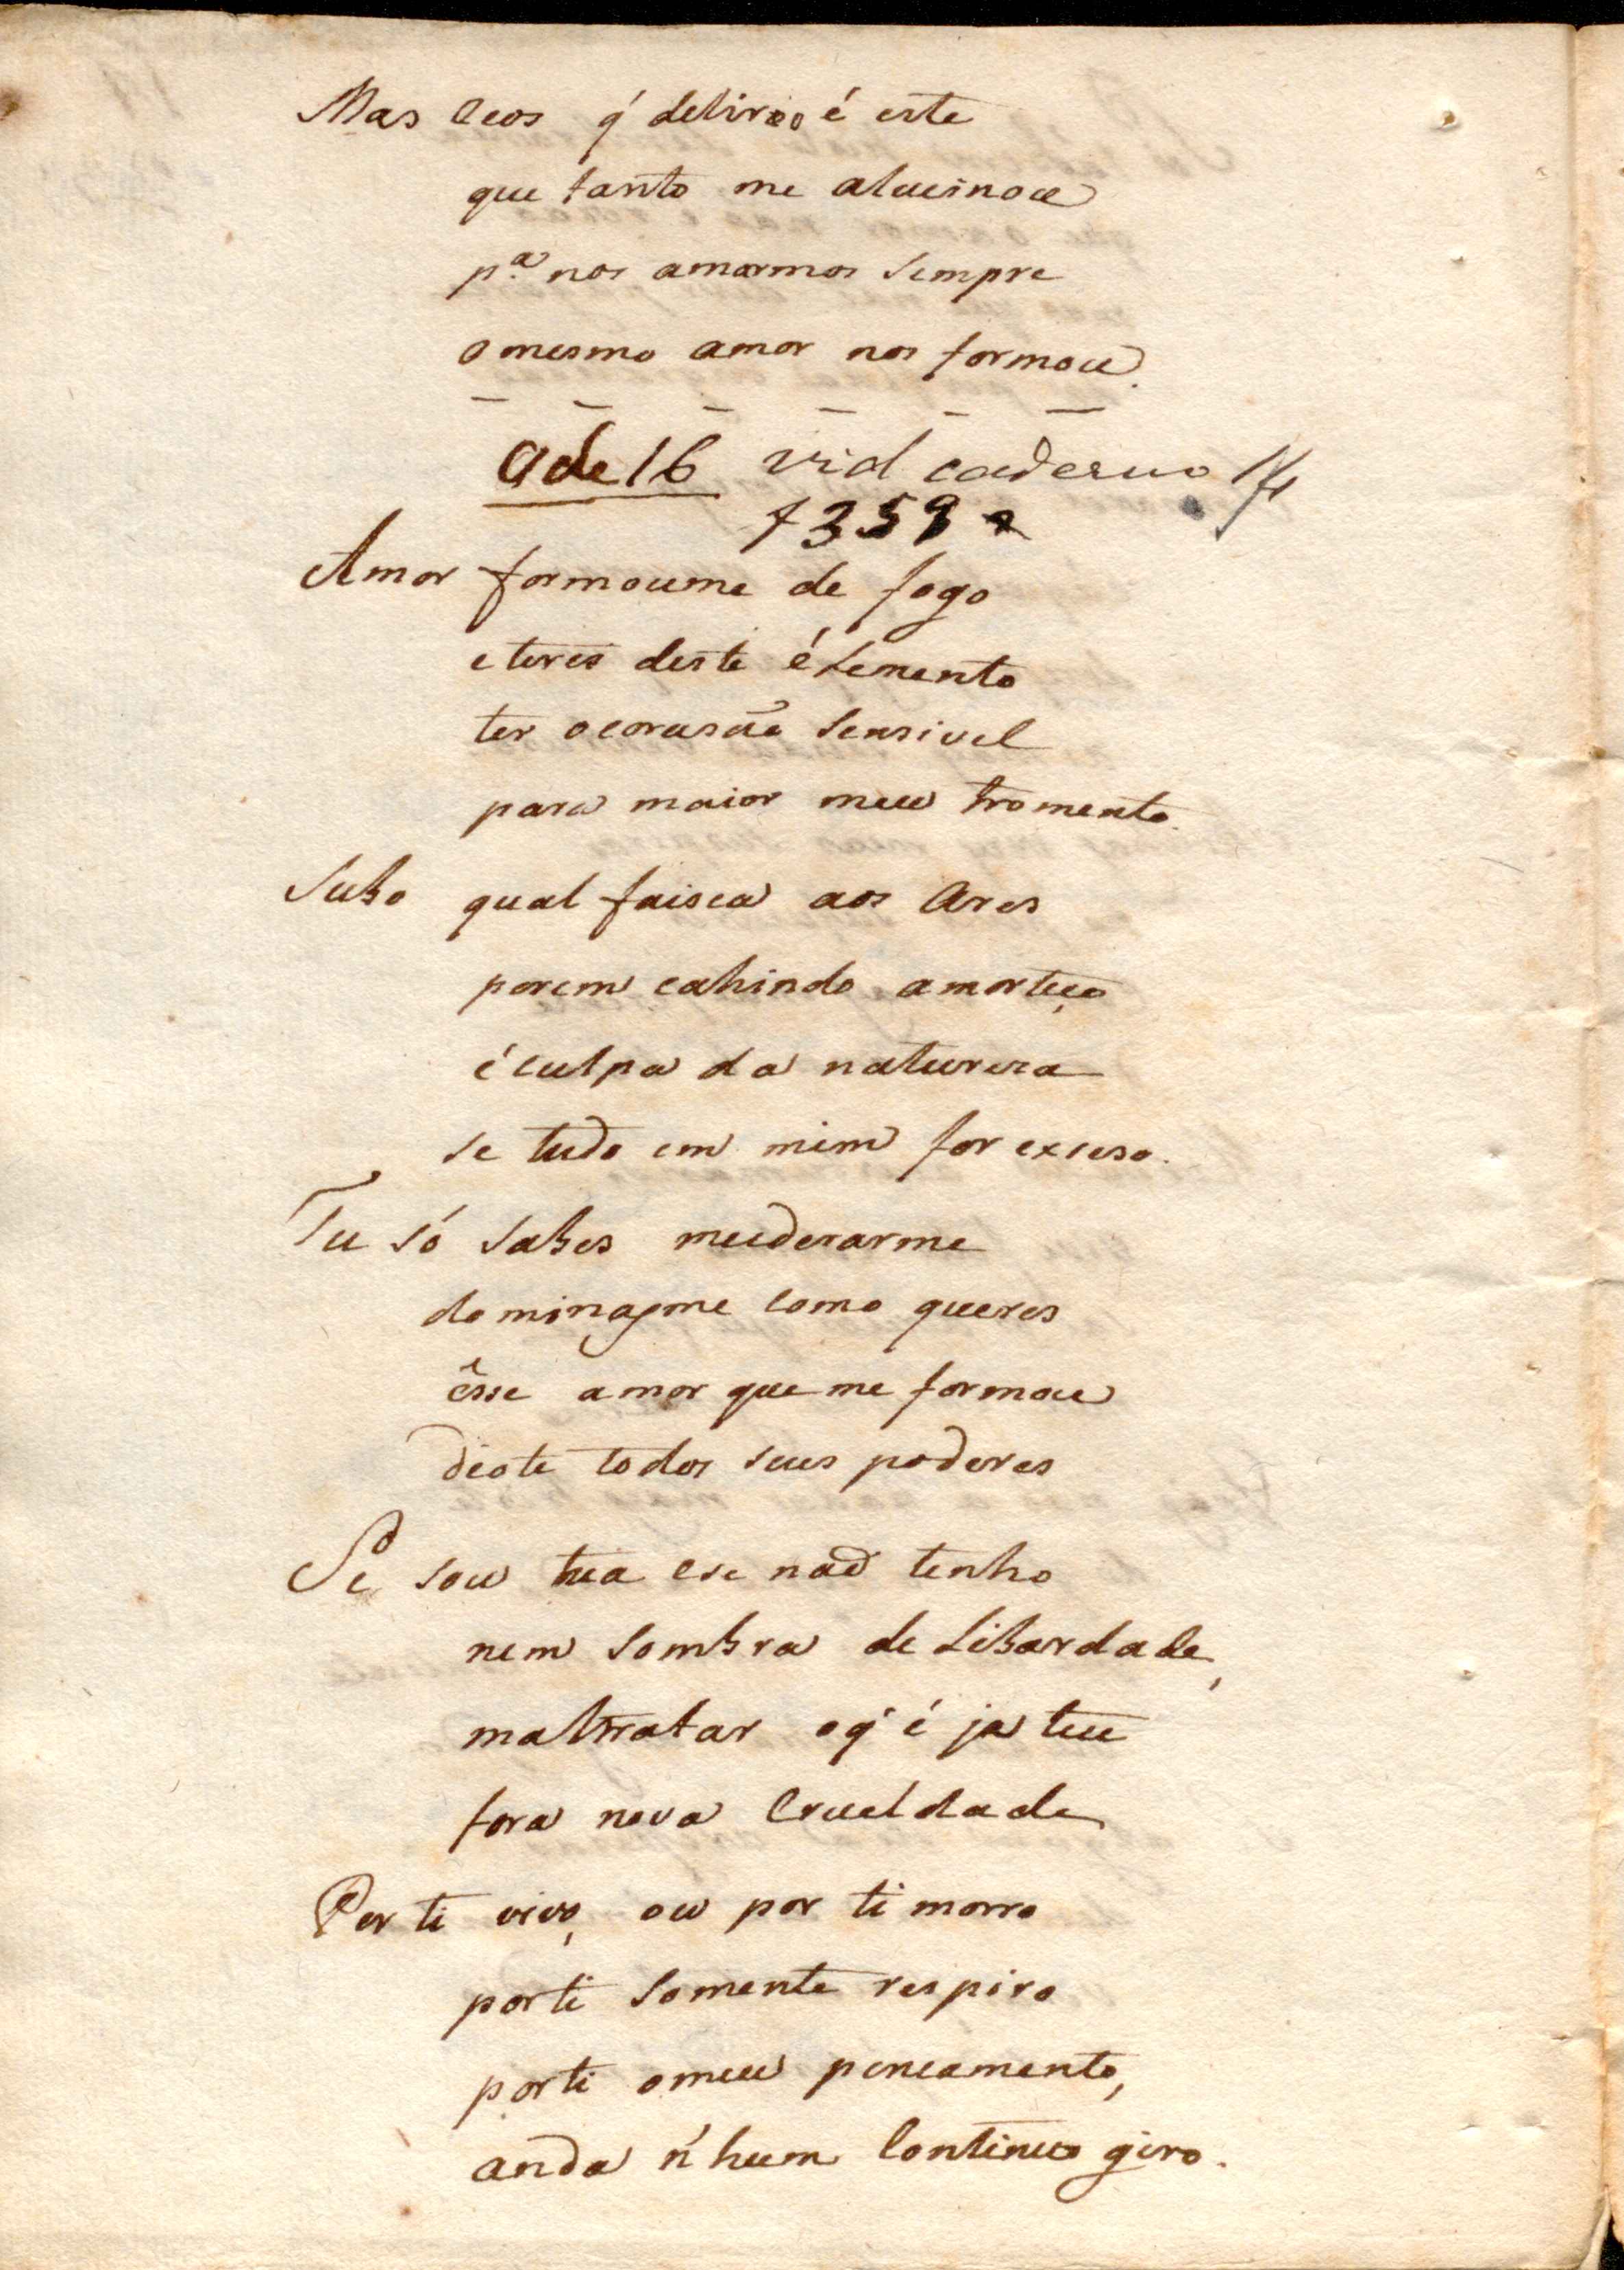 Mas Ceos q' delirio é este
que tanto me alucinou
p.ª nos amarmos sempre
o mesmo amor nos formou.
Ode 16 vid caderno
f 359
Amor formoume de fogo
e terei deste élemento
ter o corasão sensivel
para maior meu tromento.
Subo qual faisca aos Ares
porem cahindo amorteço
é culpa da natureza
se tudo em mim for exceso.
Tu só sabes muderarme
dominasme como queres
êsse amor que me formou
deote todos seus poderes
Se sou tua ese naõ tenho
nem sombra de Libardade,
maltratar oq' é ja teu
fora nova Crueldade
Por ti vivo, ou por ti morro
porti somente respiro
porti omeu pencamento,
anda n'hum Continuo giro.